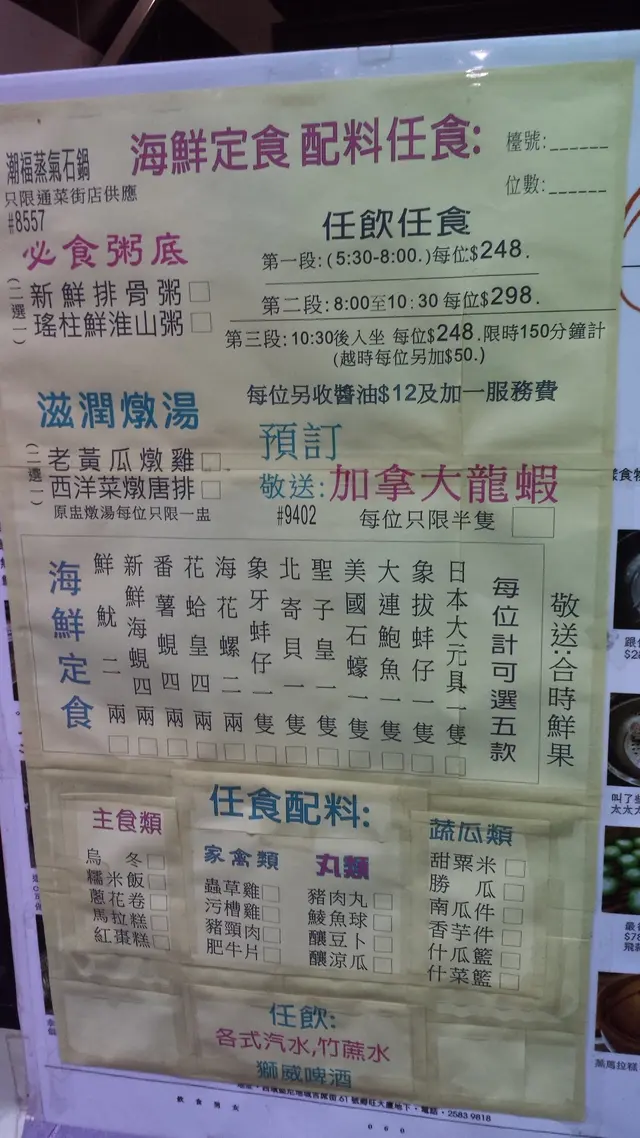 海鮮定食 配料任食:
檯號:______
位數:______
潮福蒸氣石鍋
只限通菜街店供應
#8557
必食粥底
(二選一)
新鮮排骨粥
瑤柱鮮淮山粥
任飲任食
第一段:(5:30-8:00.)每位$248.
第二段:8:00至10:30 每位$298.
第三段:10:30後入坐 每位$248.限時150分鐘計
(越時每位另加$50.)
每位另收醬油$12及加一服務費
滋潤燉湯
(二選一)
老黃瓜燉雞
西洋菜燉唐排
原盅燉湯每位只限一盅
預訂
敬送:加拿大龍蝦
#9402
每位只限半隻
海鮮定食
鮮魷二兩
新鮮海蜆四兩
番薯蜆四兩
花蛤皇四兩
海花螺二兩
象牙蚌仔一隻
北寄貝一隻
聖子皇一隻
美國石蠔一隻
大連鮑魚一隻
象拔蚌仔一隻
日本大元貝一隻
每位計可選五款
敬送:合時鮮果
任食配料:
主食類
烏冬
糯米飯
蔥花卷
馬拉糕
紅棗糕
家禽類
蟲草雞
污槽雞
豬頸肉
肥牛片
丸類
豬肉丸
鯪魚球
釀豆卜
釀涼瓜
蔬瓜類
甜粟米
勝瓜
南瓜件
香芋件
什瓜籃
什菜籃
任飲:
各式汽水,竹蔗水
獅威啤酒
61號
地下・電話・2583 9818
飲食男女